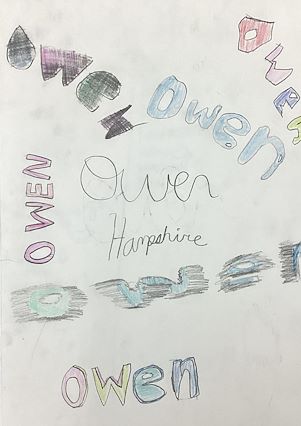 Owen
Owen
Owen
OWEN
Owen
Hampshire
owen
owen